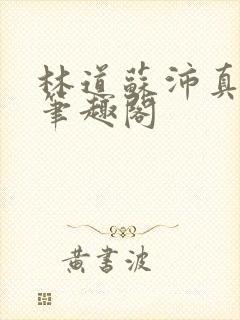 林道蘇沛真
筆趣閣
黃書波